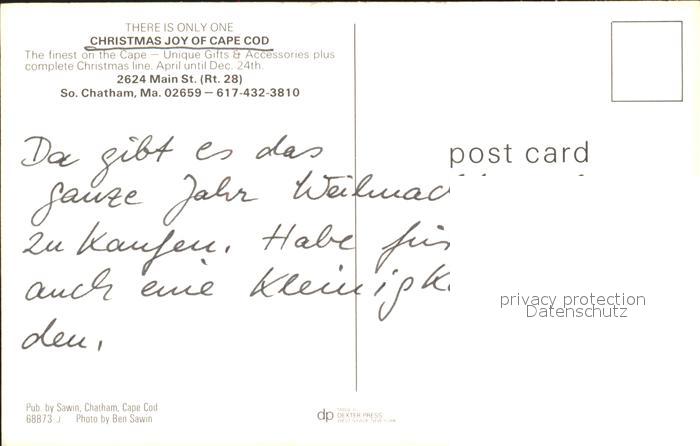 THERE IS ONLY ONE
CHRISTMAS JOY OF CAPE COD
The finest on the Cape — Unique Gifts & Accessories plus
complete Christmas line. April until Dec. 24th.
2624 Main St. (Rt. 28)
So. Chatham, Ma. 02659 — 617-432-3810
post card
Da gibt es das
ganze Jahr Weihnac
zu kaufen. Habe für
auch eine Kleinigk
den.
privacy protection
Datenschutz
Pub. by Sawin, Chatham, Cape Cod
68873 J Photo by Ben Sawin
dp
DEXTER PRESS
WEST NYACK, NEW YORK